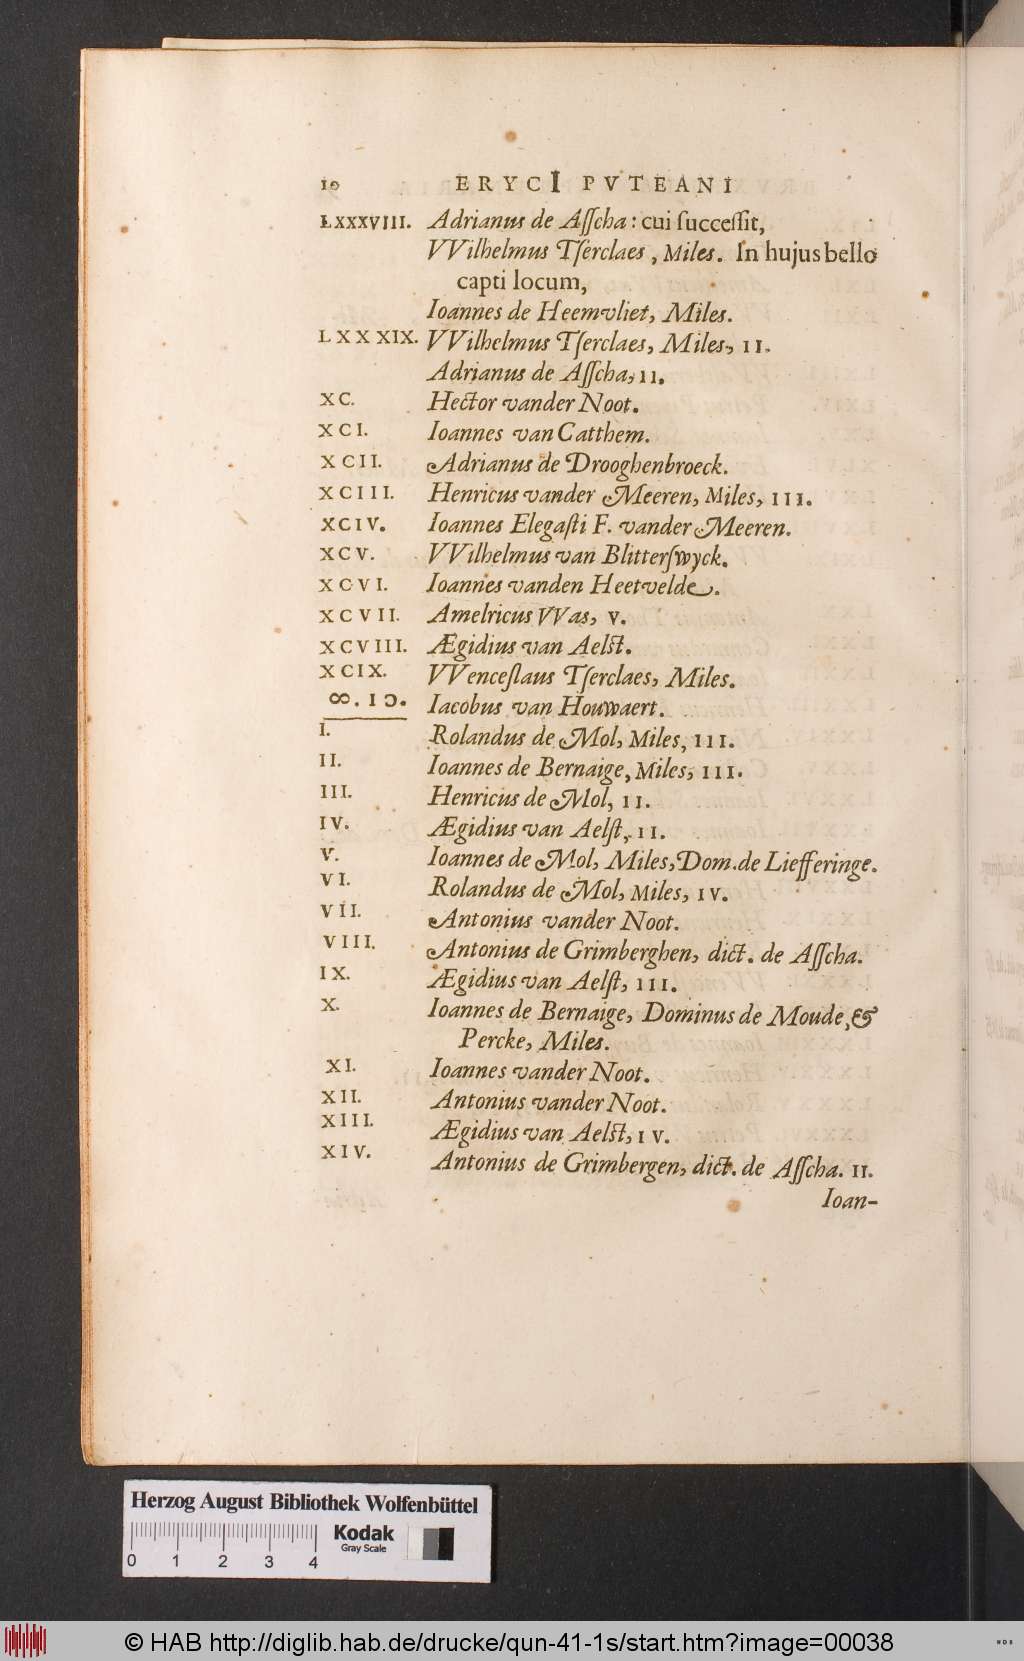 10 ERYCI PVTEANI
LXXXVIII. Adrianus de Aſſcha: cui ſucceſſit,
VVilhelmus Tſerclaes, Miles. In hujus bello
capti locum,
Ioannes de Heemvliet, Miles.
LXXXIX. VVilhelmus Tſerclaes, Miles, II.
Adrianus de Aſſcha, II.
XC. Hector vander Noot.
XCI. Ioannes van Catthem.
XCII. Adrianus de Drooghenbroeck.
XCIII. Henricus vander Meeren, Miles, III.
XCIV. Ioannes Elegaſti F. vander Meeren.
XCV. VVilhelmus van Blitterſwyck.
XCVI. Ioannes vanden Heetvelde.
XCVII. Amelricus VVas, V.
XCVIII. Ægidius van Aelſt.
XCIX. VVenceſlaus Tſerclaes, Miles.
∞.IↃ. Iacobus van Houwaert.
I. Rolandus de Mol, Miles, III.
II. Ioannes de Bernaige, Miles, III.
III. Henricus de Mol, II.
IV. Ægidius van Aelſt, II.
V. Ioannes de Mol, Miles, Dom. de Liefferinge.
VI. Rolandus de Mol, Miles, IV.
VII. Antonius vander Noot.
VIII. Antonius de Grimberghen, dict. de Aſſcha.
IX. Ægidius van Aelſt, III.
X. Ioannes de Bernaige, Dominus de Moude, &
Percke, Miles.
XI. Ioannes vander Noot.
XII. Antonius vander Noot.
XIII. Ægidius van Aelſt, IV.
XIV. Antonius de Grimbergen, dict. de Aſſcha. II.
Ioan-
Herzog August Bibliothek Wolfenbüttel
Kodak
Gray Scale
0 1 2 3 4
© HAB http://diglib.hab.de/drucke/qun-41-1s/start.htm?image=00038